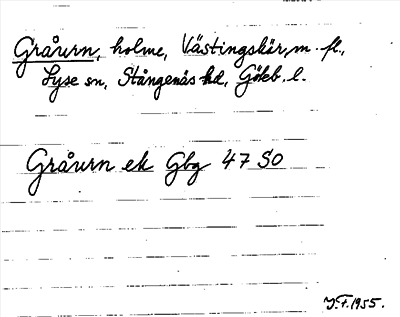 Gråurn, holme, Västingskär, m. fl.,
Lyse sn, Stångenäs hd, Göteb. l.
Gråurn ek Gbg 47 SO
J.F. 1955.